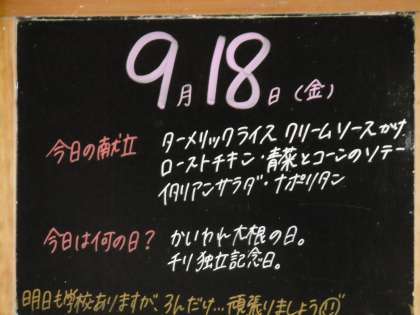 9月18日(金)
今日の献立
ターメリックライス クリームソースかけ
ローストチキン・青菜とコーンのソテー
イタリアンサラダ・ナポリタン
今日は何の日? かいわれ大根の日。
チリ独立記念日。
明日も学校ありますが、3んだけ…頑張りましょう